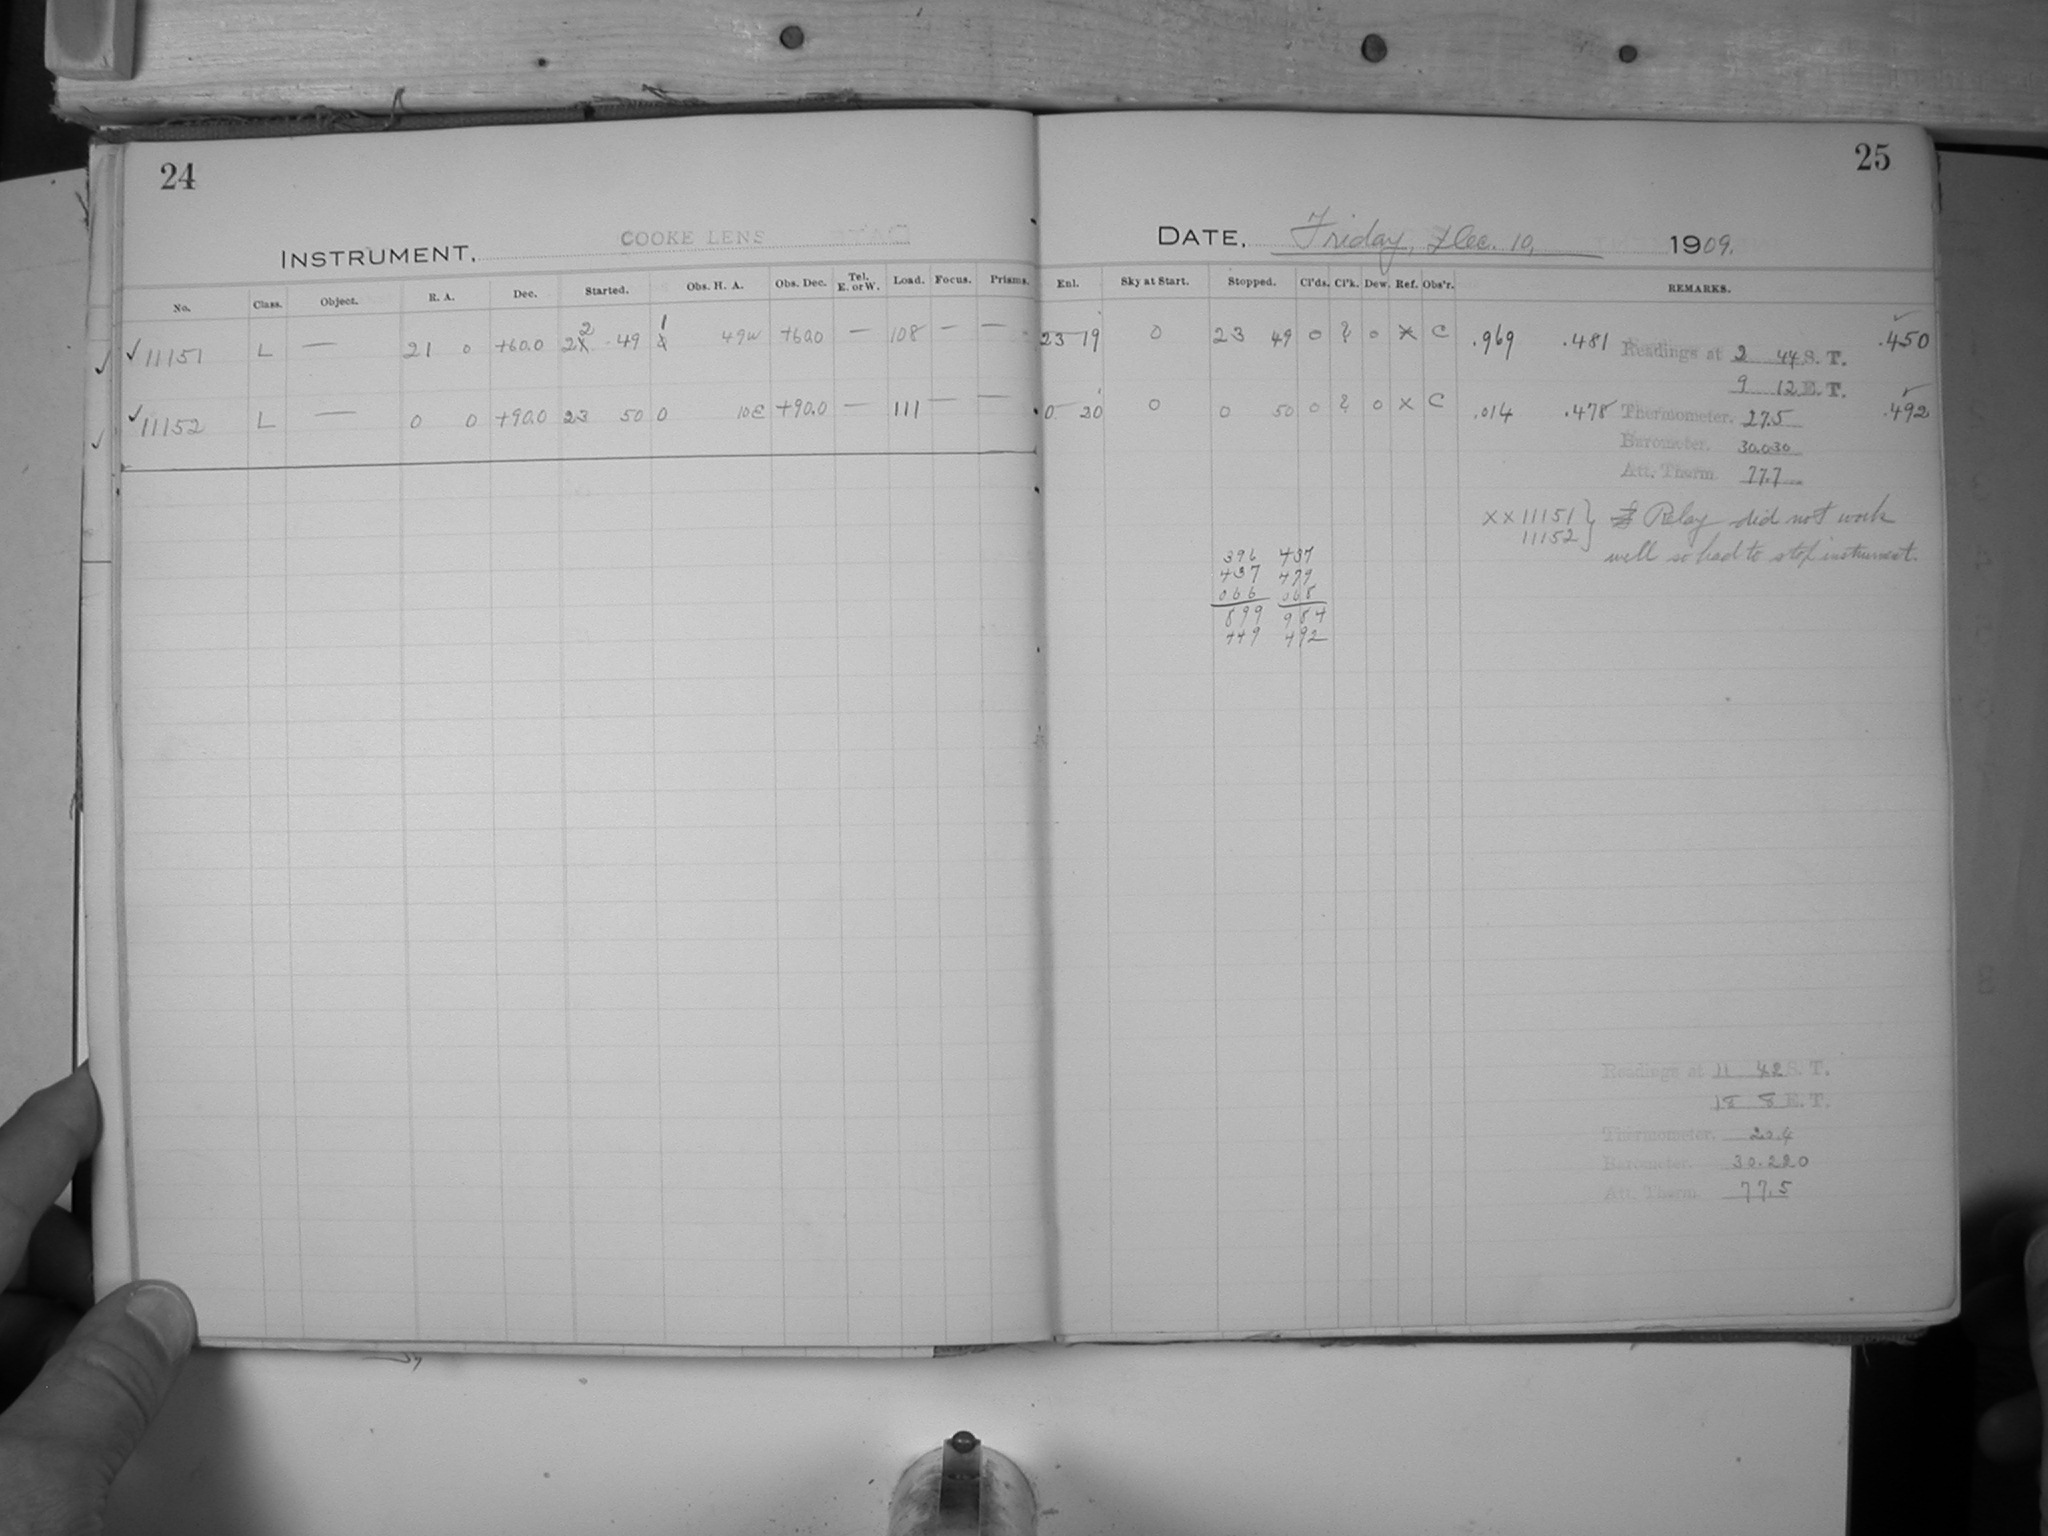 24
25
INSTRUMENT. COOKE LENS
DATE. Friday, Dec. 10, 1909.
No. Class. Object. R. A. Dec. Started. Obs. H. A. Obs. Dec. Tel. E. or W. Load. Focus. Prisms. Enl. Sky at Start. Stopped. Cl'ds. Cl'k. Dew. Ref. Obs'r. REMARKS.
✓ 11151 L — 21 0 +60.0 22 49 1 49w +60.0 — 108 — — 23 19 0 23 49 0 2 0 x C .969 .481 .450
Readings at 2 44 S. T.
9 12 E. T.
✓ 11152 L — 0 0 +90.0 23 50 0 10E +90.0 — 111 — — 0 20 0 0 50 0 2 0 x C .014 .478 .492
Thermometer. 27.5
Barometer. 30.030
Att. Therm. 77.7
x x 11151 } Relay did not work
11152 } well so had to stop instrument.
396 437
437 479
066 068
899 984
449 492
Readings at 11 42 S. T.
18 8 E. T.
Thermometer. 20.4
Barometer. 30.220
Att. Therm 77.5